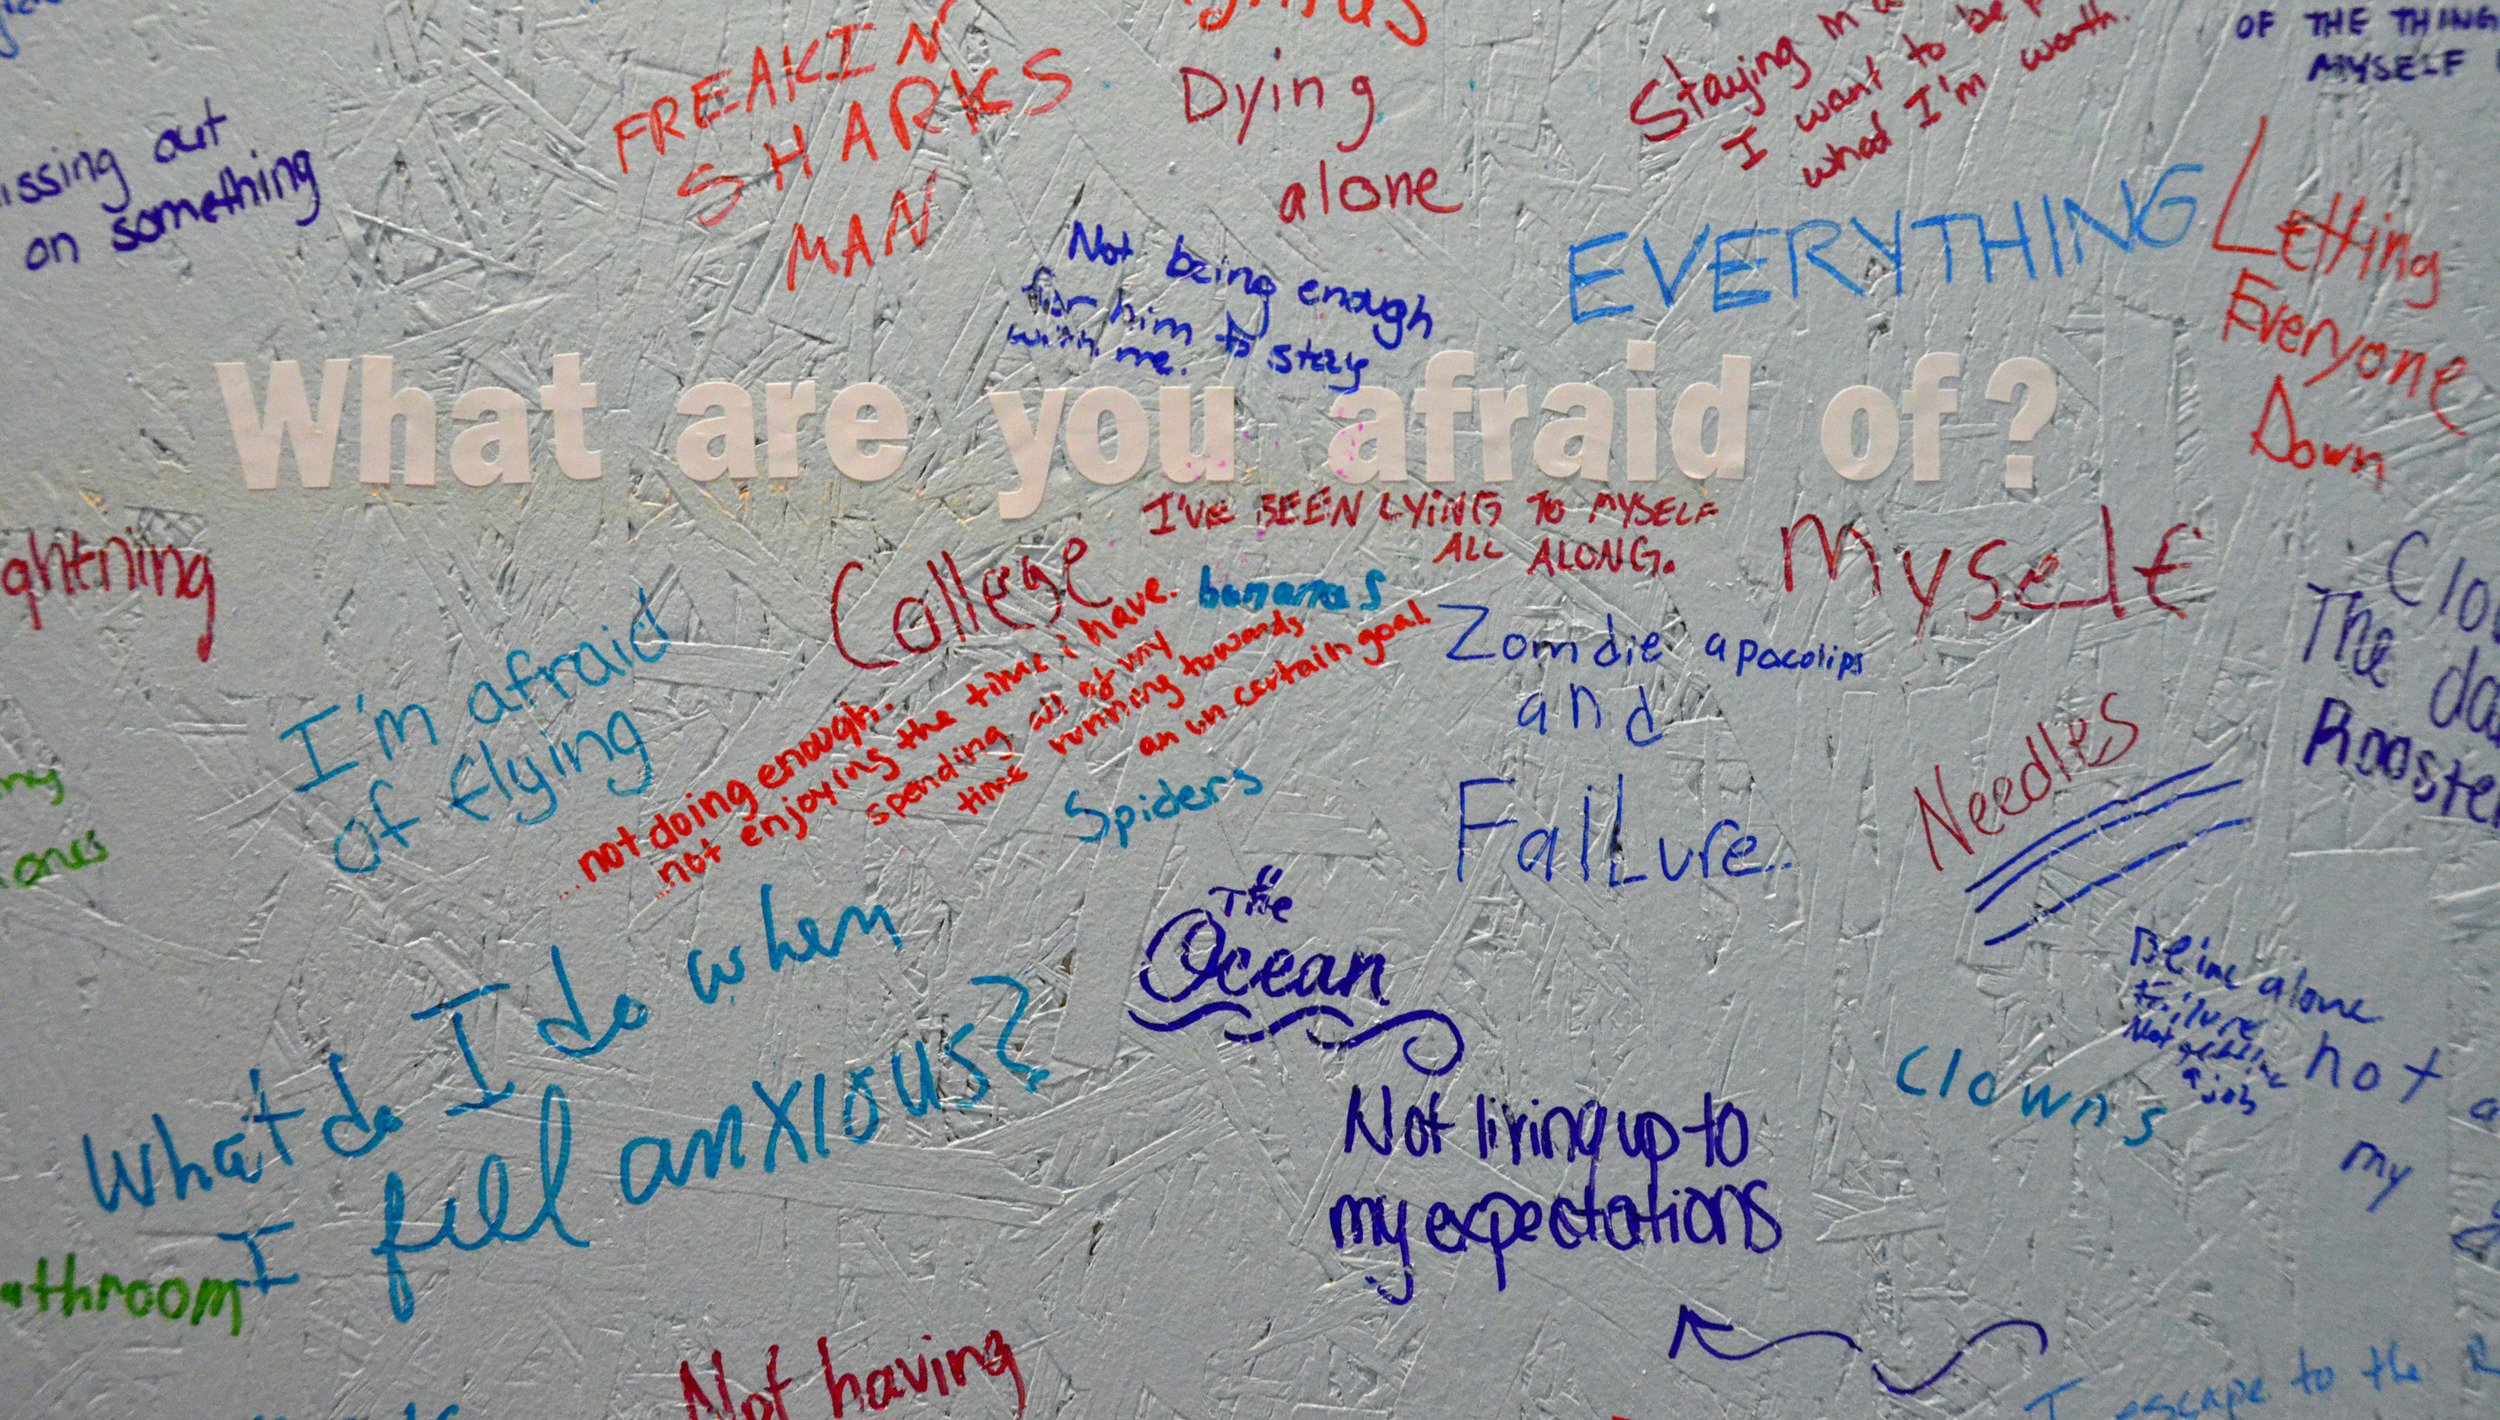 FREAKIN
SHARKS
MAN
Dying
alone
Staying in
I want to be
what I'm worth.
OF THE THING
MYSELF
issing out
on something
Not being enough
for him to stay
with me.
EVERYTHING
Letting
Everyone
Down
What are you afraid of?
I'VE BEEN LYING TO MYSELF
ALL ALONG.
Myself
ghtning
College
bananas
I'm afraid
of flying
not doing enough.
not enjoying the time i have.
spending all of my
time running towards
an un certain goal
Spiders
Zomdie apocolips
and
Faillure
Needles
Clo
The da
Rooste
ones
What do I do when
I feel anxious?
The
Ocean
Not living up to
my expectations
Being alone
failure
Not getting
a job
clowns
not a
my
athroom
Not having
I escape to the